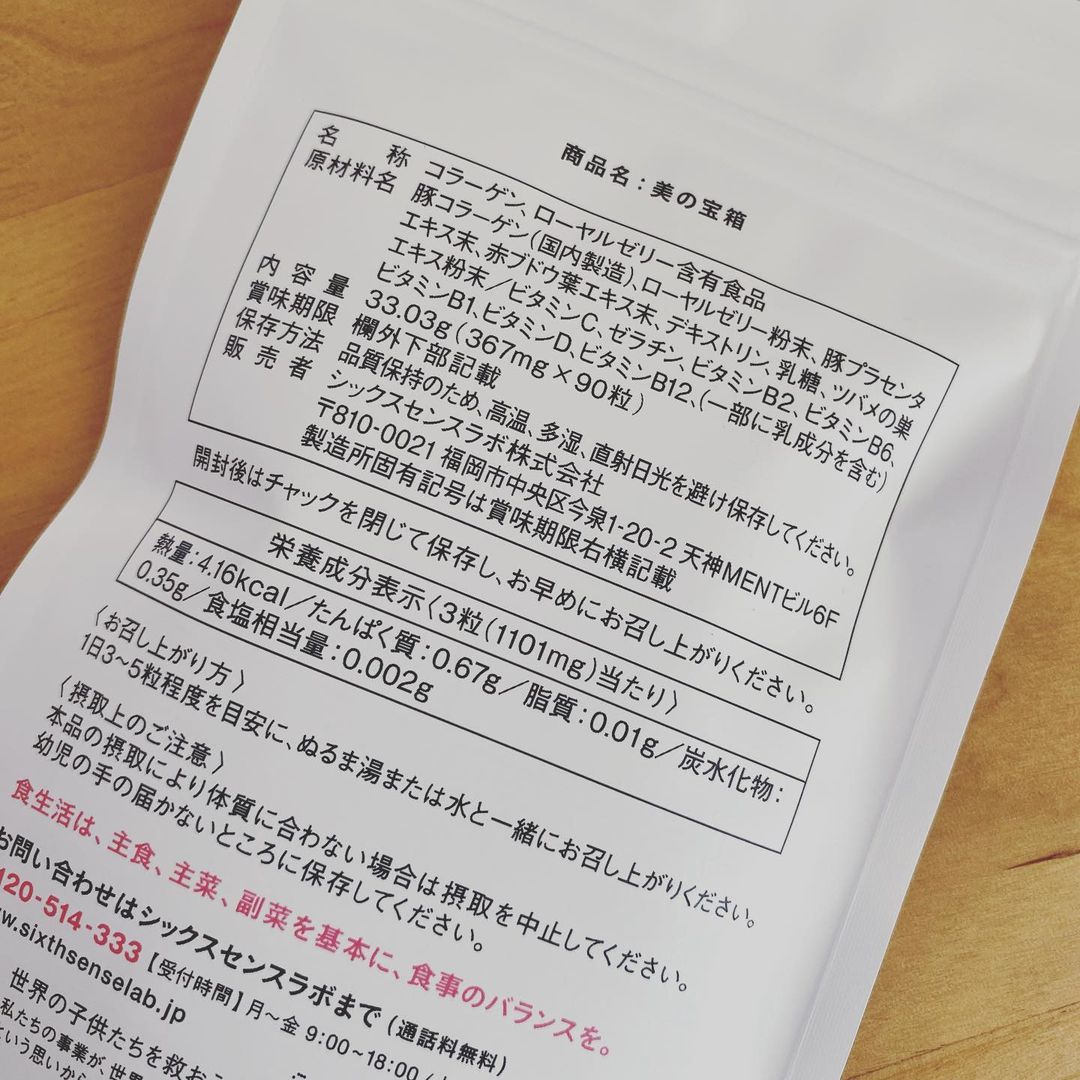 商品名：美の宝箱
名称 コラーゲン、ローヤルゼリー含有食品
原材料名 豚コラーゲン(国内製造)、ローヤルゼリー粉末、豚プラセンタ
エキス末、赤ブドウ葉エキス末、デキストリン、乳糖、ツバメの巣
エキス粉末／ビタミンC、ゼラチン、ビタミンB2、ビタミンB6、
ビタミンB1、ビタミンD、ビタミンB12、(一部に乳成分を含む)
内容量 33.03g(367mg×90粒)
賞味期限 欄外下部記載
保存方法 品質保持のため、高温、多湿、直射日光を避け保存してください。
販売者 シックスセンスラボ株式会社
〒810-0021 福岡市中央区今泉1-20-2 天神MENTビル6F
製造所固有記号は賞味期限右横記載
開封後はチャックを閉じて保存し、お早めにお召し上がりください。
栄養成分表示〈3粒(1101mg)当たり〉
熱量：4.16kcal／たんぱく質：0.67g／脂質：0.01g／炭水化物：
0.35g／食塩相当量：0.002g
〈お召し上がり方〉
1日3～5粒程度を目安に、ぬるま湯または水と一緒にお召し上がりください。
〈摂取上のご注意〉
本品の摂取により体質に合わない場合は摂取を中止してください。
幼児の手の届かないところに保存してください。
食生活は、主食、主菜、副菜を基本に、食事のバランスを。
お問い合わせはシックスセンスラボまで(通話料無料)
120-514-333【受付時間】月～金 9:00~18:00
w.sixthsenselab.jp
世界の子供たちを救お
私たちの事業が、世界
という思いから